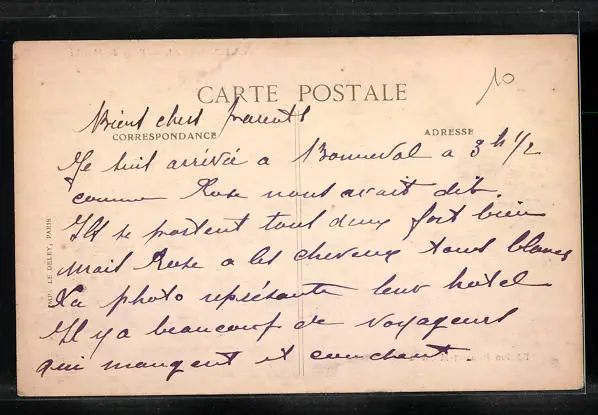 CARTE POSTALE
10
Biens chers parents
CORRESPONDANCE
ADRESSE
Je suis arrivée a Bonneval a 3 h 1/2
comme Rose nous avait dit.
Ils se portent tous deux fort bien
mais Rose a les cheveux tous blancs
La photo représente leur hotel
Il y a beaucoup de voyageurs
qui mangent et couchent
IMP. LE DELEY, PARIS